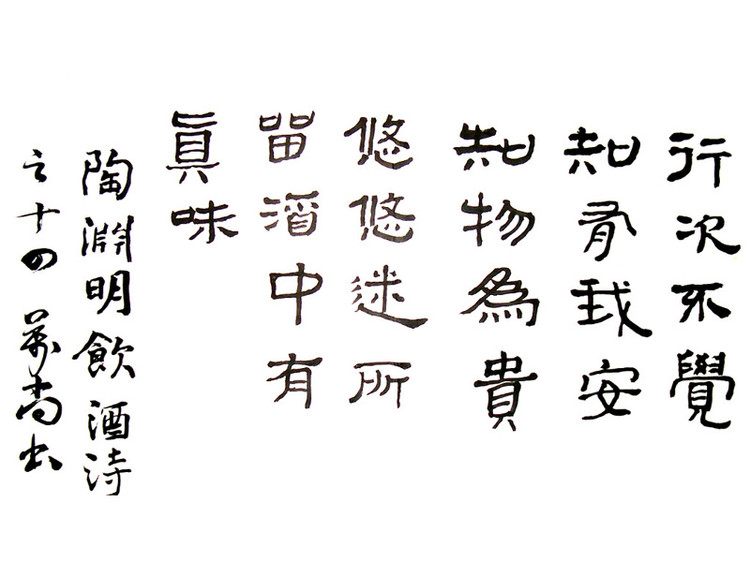 行次不覺
知有我安
知物為貴
悠悠迷所
留酒中有
眞味
陶淵明飲酒詩
之十四 萬尚书